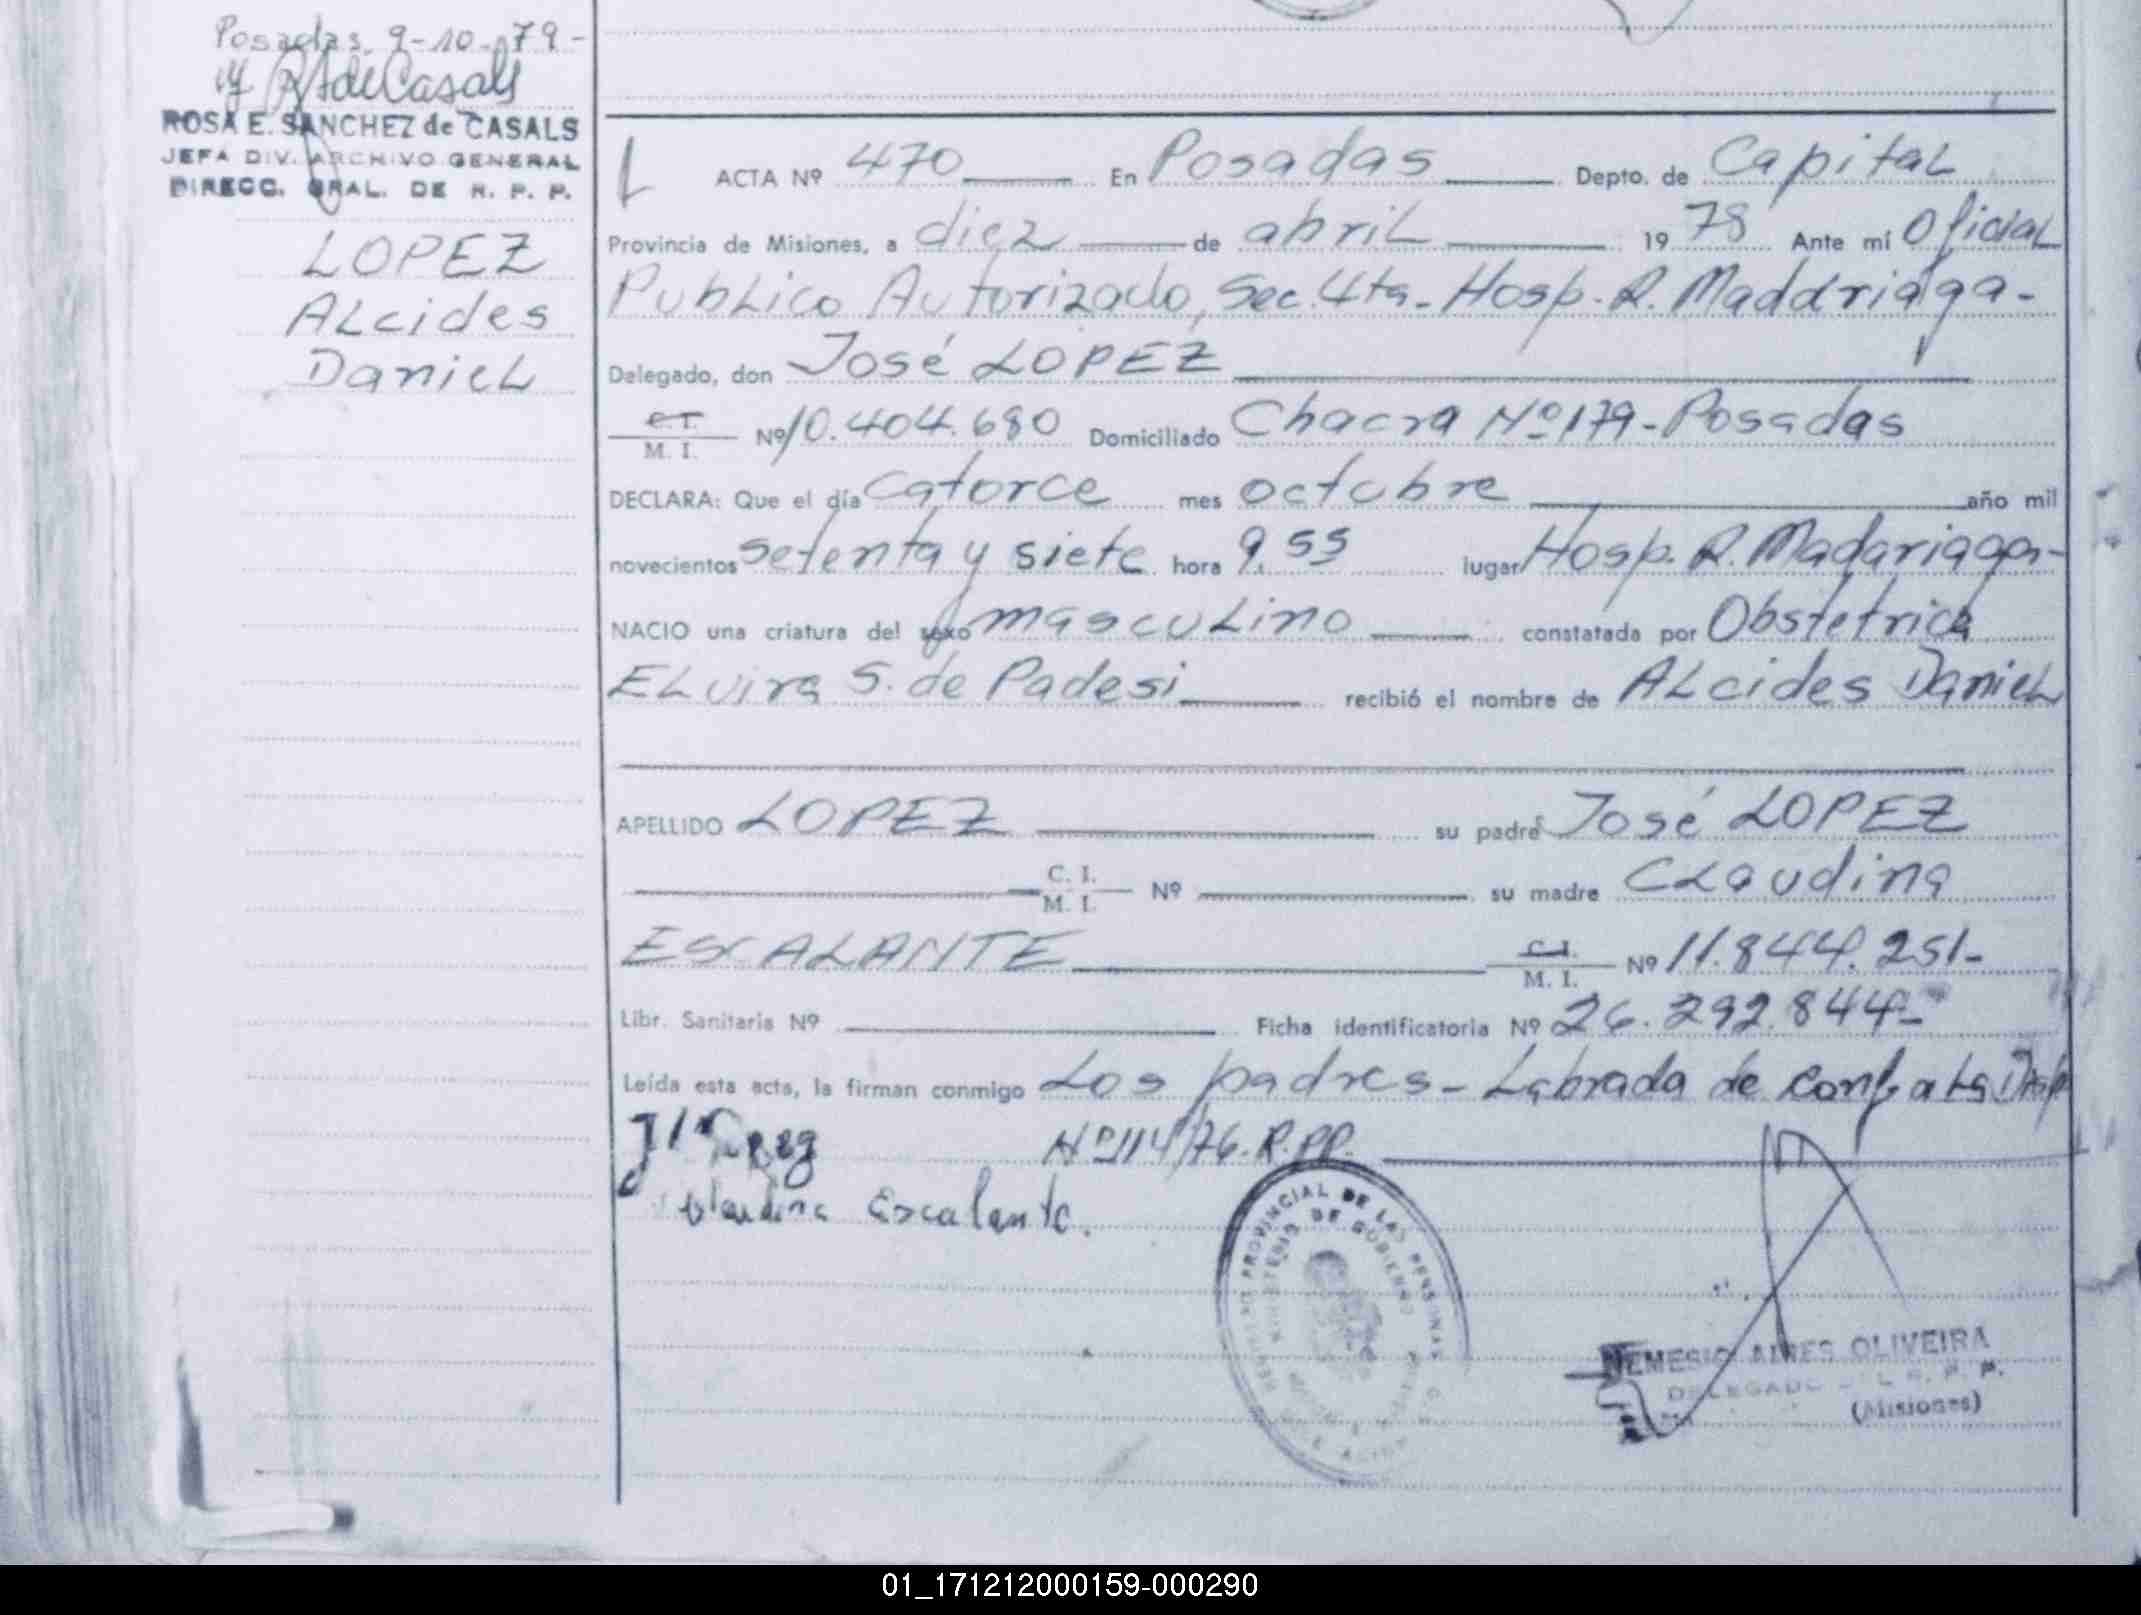 Posadas, 9-10-79-
RSdeCasals
ROSA E. SANCHEZ de CASALS
JEFA DIV. ARCHIVO GENERAL
DIRECC. GRAL. DE R. P. P.
LOPEZ
ALcides
DanieL
ACTA Nº 470 En Posadas Depto. de CapitaL
Provincia de Misiones, a diez de abriL 1978 Ante mí OficiaL
PubLico Autorizado, Sec. 4ta- Hosp. R. Maddriaga-
Delegado, don José LOPEZ
C.I.
M. I. Nº 10.404.680 Domiciliado Chacra Nº 179-Posadas
DECLARA: Que el día catorce mes octubre año mil
novecientos setenta y siete hora 9.55 lugar Hosp. R. Madariaga-
NACIO una criatura del sexo mascuLino constatada por Obstetrica
ELvira S. de Padesi recibió el nombre de ALcides DanieL
APELLIDO LOPEZ su padre José LOPEZ
C. I.
M. I. Nº su madre CLaudina
ESCALANTE C.I.
M. I. Nº 11.844.251-
Libr. Sanitaria Nº Ficha identificatoria Nº 26.292.844-
Leída esta acta, la firman conmigo Los padres- Labrada de conf. a La Disp
Nº 114/76. R.PP.
Claudina Escalante.
REGISTRO PROVINCIAL DE LAS PERSONAS
MINISTERIO DE GOBIERNO
NEMESIO AIRES OLIVEIRA
DELEGADO R. P. P.
(Misiones)
01_171212000159-000290